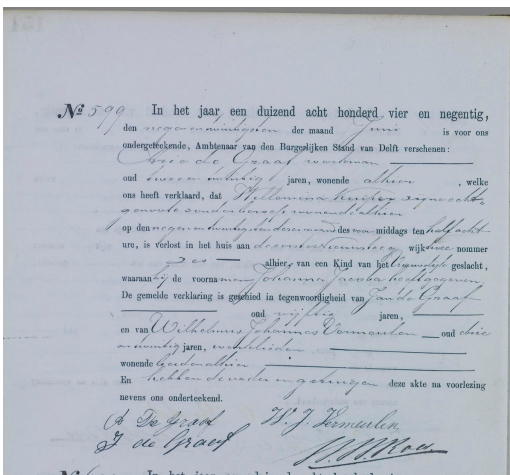 No 599 In het jaar een duizend acht honderd vier en negentig,
den negenentwintigsten der maand Juni is voor ons
ondergeteekende, Ambtenaar van den Burgerlijken Stand van Delft verschenen:
Arie de Graaf werkman
oud twee en jaren, wonende alhier, welke
ons heeft verklaard, dat Willemina zijne echt-
genoote zonder beroep wonende alhier
op den negen en twintigsten dezer maand des voor middags ten half acht
ure, is verlost in het huis aan wijk twee nommer
zes alhier, van een Kind van het vrouwelijk geslacht,
waaraan hij de voornamen Johanna Jacoba heeft gegeven
De gemelde verklaring is geschied in tegenwoordigheid van Jan de Graaf
oud vijftig jaren,
en van Wilhelmus Johannes Vermeulen oud drie
en twintig jaren, werklieden
wonende beiden alhier
En hebben de vader en getuigen deze akte na voorlezing
nevens ons onderteekend.
A De Graaf W. J. Vermeulen
J de Graaf
In het jaar een duizend acht honderd